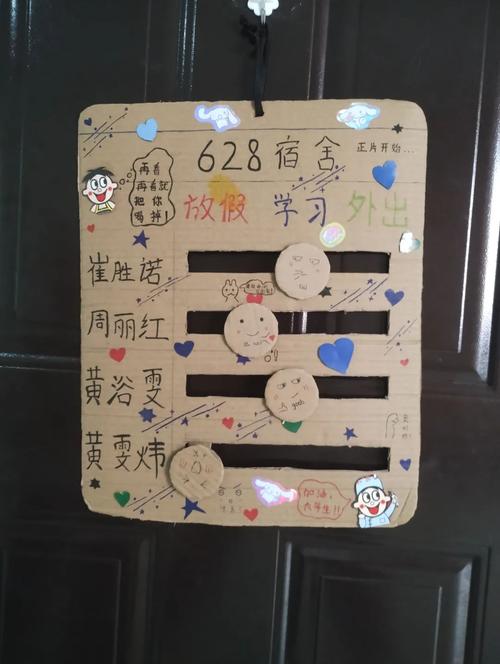 628宿舍
正片开始...
再看
再看就
把你
喝掉!
放假 学习 外出
崔胜诺
周丽红
黄浴雯
黄雯炜
加油,
大学生!!